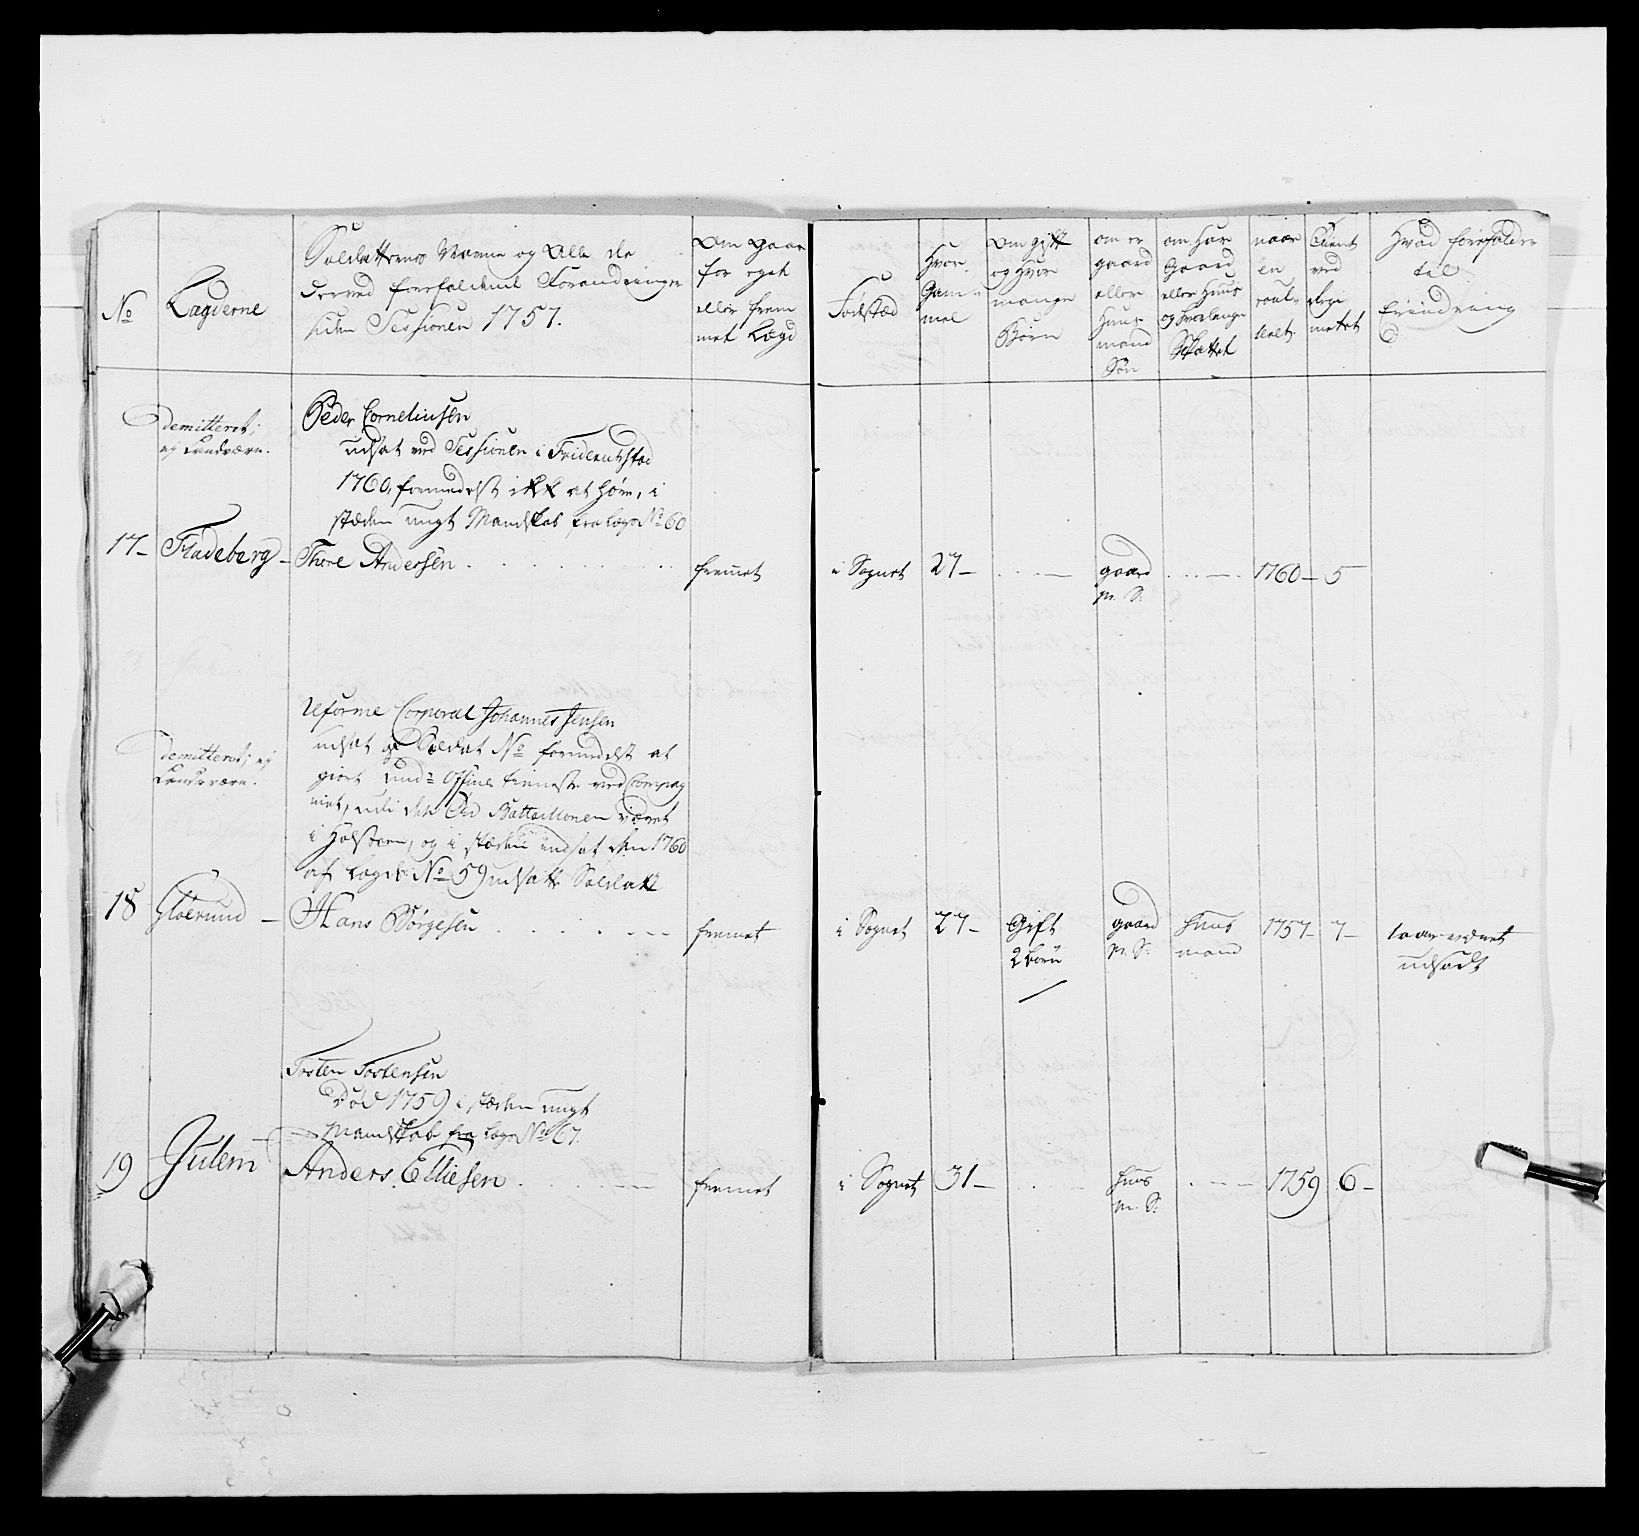 No
Lagderne
Soldatternes Navne og Alle de
derved forefaldene Forandringer
siden Sessionen 1757.
Om gaar
for eget
eller frem
met Lægd
Fodstæd
Hvor
Gam=
mel
Om gift
og hvor
mange
Børn
om er
gaard
eller
huus
mand
Søn
om har
Gaard
eller Huus
og hvorlænge
naar
en
roul=
lert
tient
ved
Regi
mentet
Hvad forefalder
til
Erindring
demitteret;
ej Landværn.
Peder Corneliusen
udsat ved Sessionen i Friderichstad
1760, formedelst ikk at høre, i
stæden ungt Mandskab fra Lægd No 60
17- Fladeberg - Thore Andersen
fremet
i Sognet 27 -
gaard
m. S.
1760 - 5
demitteret; ej
Landværn.
Reforme Corporal Johannes Jensen
udsat Soldat No formedelst at
giort und= Officer tieneste ved Compag
niet, udi den Tid Battaillonen været
i Holsteen, og i stæden indsat den 1760
af Lægd No 59 udsatte Soldatt
18 - Hans Børgesen
fremet
i Sognet 27 -
Gift
2 børn
gaard
m. S.
huus
mand
1757 - 7 -
været
udsadt
Tosten Tostensen
Død 1759 i stæden ungt
Mandskab fra Lægd No 67.
19 Julem Anders Elliesen
fremet
i Sognet 31 -
huus
m. S.
1759 6 -